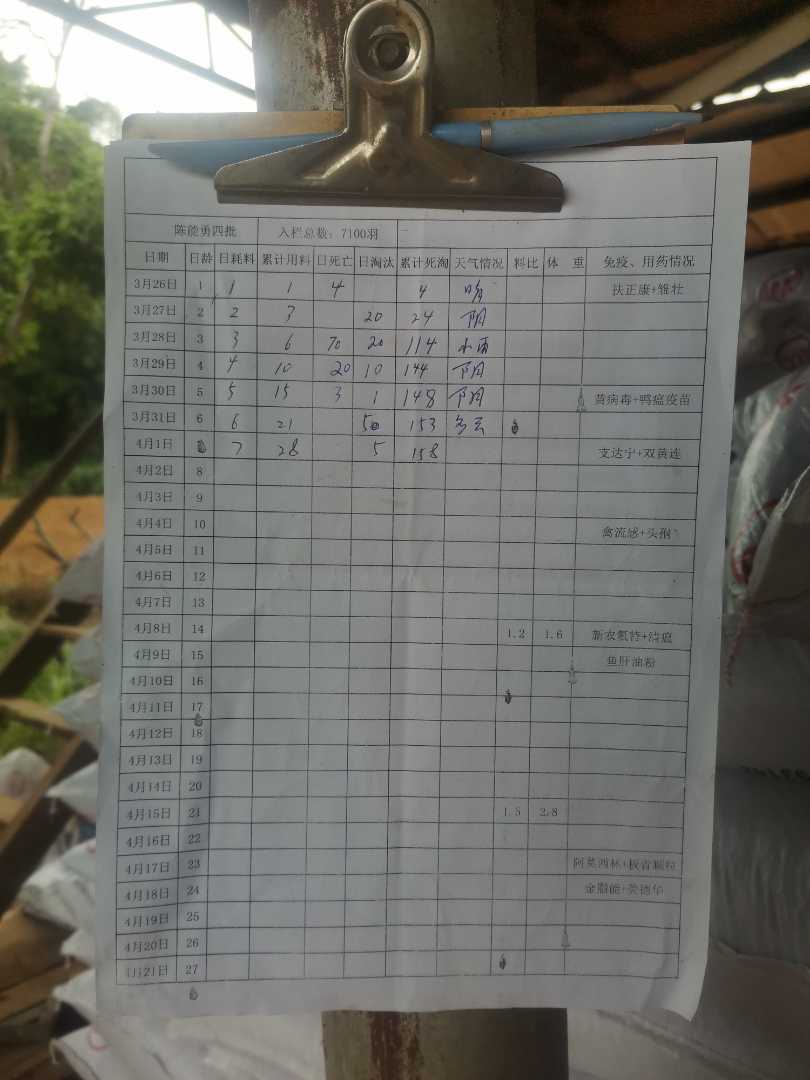 陈能勇四批 入栏总数：7100羽
日期 日龄 日耗料 累计用料 日死亡 日淘汰 累计死淘 天气情况 料比 体 重 免疫、用药情况
3月26日 1 1 1 4 4 晴 扶正康+雏壮
3月27日 2 2 3 20 24 阴
3月28日 3 3 6 70 20 114 小雨
3月29日 4 4 10 20 10 144 阴
3月30日 5 5 15 3 1 148 阴 黄病毒+鸭瘟疫苗
3月31日 6 6 21 5 153 多云
4月1日 7 28 5 158 支达宁+双黄连
4月2日 8
4月3日 9
4月4日 10 禽流感+头孢
4月5日 11
4月6日 12
4月7日 13
4月8日 14 1.2 1.6 新农氟特+
4月9日 15 鱼肝油粉
4月10日 16
4月11日 17
4月12日 18
4月13日 19
4月14日 20
4月15日 21 1.5 2.8
4月16日 22
4月17日 23 阿莫西林+板青颗粒
4月18日 24
4月19日 25
4月20日 26
4月21日 27